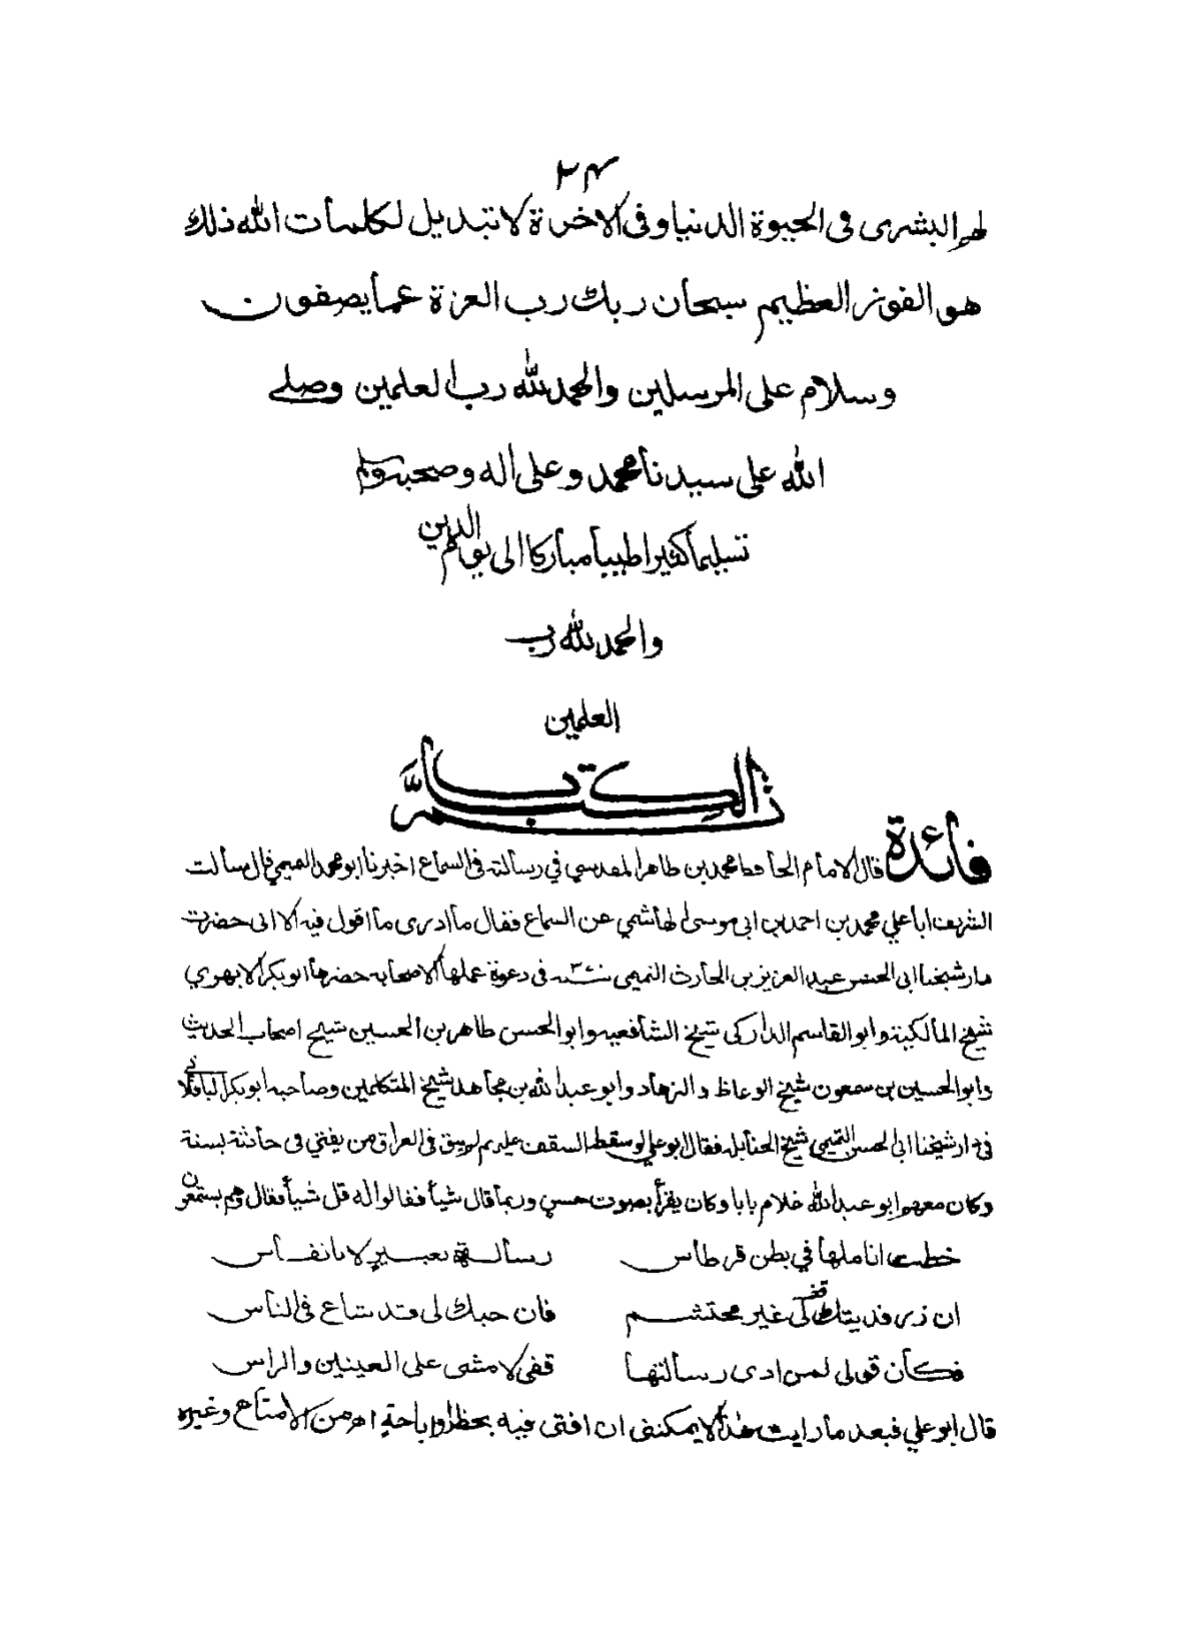 ٢٤
لهم البشرى فى الحيوة الدنيا وفى الاخرة لا تبديل لكلمات الله ذلك
هو الفوز العظيم سبحان ربك رب العزة عما يصفون
وسلام على المرسلين والحمد لله رب العلمين وصلى
الله على سيدنا محمد وعلى اله وصحبه وسلم
تسليما كثيرا طيبا مباركا الى يوم الدين
والحمد لله رب
العلمين
تم الكتب
فائدة قال الامام الحافظ محمد بن طاهر المقدسي في رسالته فى السماع اخبرنا ابو محمد التميمي قال سالت
الشريف ابا علي محمد بن احمد بن ابى موسى الهاشمي عن السماع فقال ما ادرى ما اقول فيه الا انى حضرت
دار شيخنا ابى الحسن عبد العزيز بن الحارث التميمى سنة ٣٧٠ فى دعوة عملها لاصحابه حضرها ابو بكر الابهري
شيخ المالكية وابو القاسم الداركى شيخ الشافعيه وابو الحسن طاهر بن الحسين شيخ اصحاب الحديث
وابو الحسين بن سمعون شيخ الوعاظ والزهاد وابو عبد الله بن مجاهد شيخ المتكلمين وصاحبه ابو بكر الباقلانى
فى دار شيخنا ابى الحسن التميمى شيخ الحنابله فقال ابو علي لو سقط السقف عليهم لم يبق فى العراق من يفتي فى حادثة بسنة
وكان معهم ابو عبد الله غلام بابا وكان يقرأ بصوت حسن وربما قال شيأ فقالوا له قل شيأ فقال وهم يستمعون
خطت اناملها في بطن قرطاس رسالة بعبير لا بانفاس
ان زر فديتك قف لى غير محتشم فان حبك لى قد شاع فى الناس
فكان قولى لمن ادى رسالتها قفى لامشى على العينين والراس
قال ابو علي فبعد ما رايت هذا لا يمكننى ان افتى فيه بحظر او اباحة اهـ من الامتاع وغيره